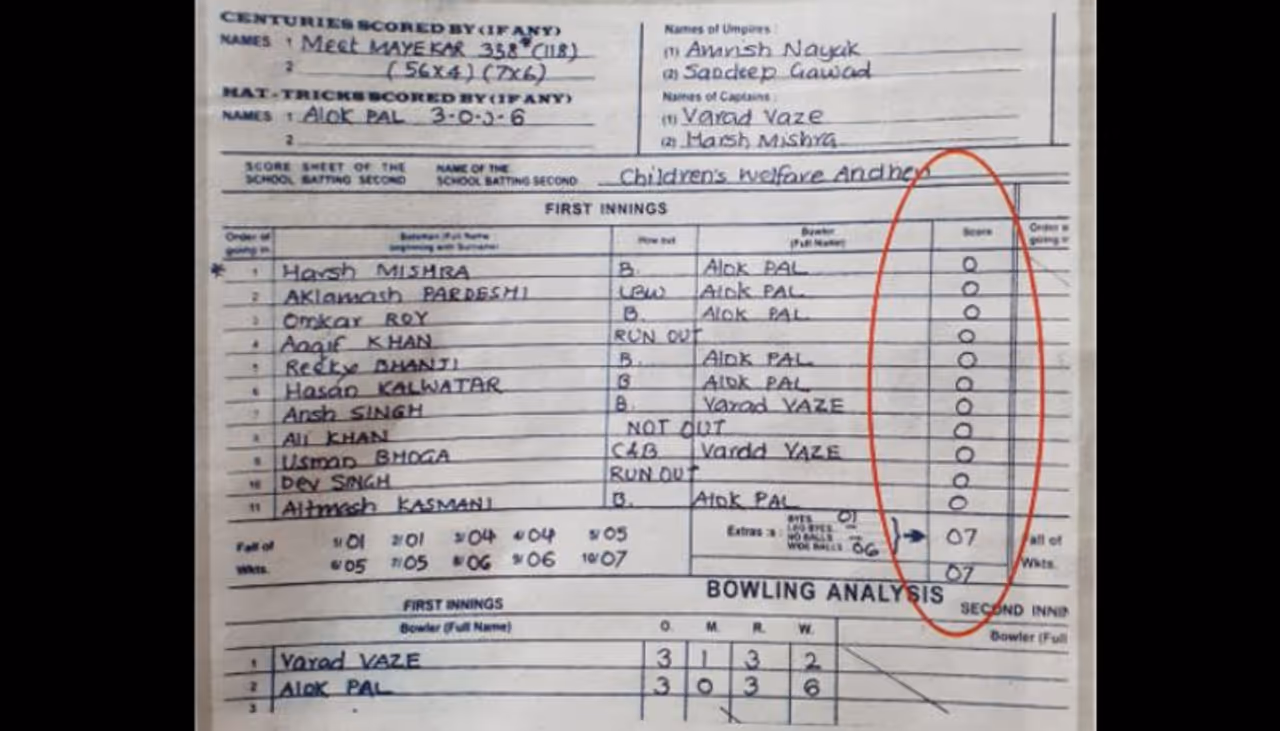 CENTURIES SCORED BY (IF ANY)
NAMES 1 Meet MAYEKAR 338* (118)
2 (56x4) (7x6)
HAT-TRICKS SCORED BY (IF ANY)
NAMES 1 Alok PAL 3-0-3-6
2
Names of Umpires :
(1) Amrish Nayak
(2) Sandeep Gawad
Names of Captains :
(1) Varad Vaze
(2) Harsh Mishra
SCORE SHEET OF THE SCHOOL BATTING SECOND NAME OF THE SCHOOL BATTING SECOND Children's Welfare Andheri
FIRST INNINGS
Order of going in Batsman (Full Name beginning with Surname) How out Bowler (Full Name) Score Order of going in
* 1 Harsh MISHRA B. Alok PAL 0
2 Aklamash PARDESHI LBW Alok PAL 0
3 Omkar ROY B. Alok PAL 0
4 Aaqif KHAN RUN OUT 0
5 Recky BHANJI B. Alok PAL 0
6 Hasan KALWATAR B Alok PAL 0
7 Ansh SINGH B. Varad VAZE 0
8 Ali KHAN NOT OUT 0
9 Usman BHOGA C&B Varad VAZE 0
10 Dev SINGH RUN OUT 0
11 Altmash KASMANI B. Alok PAL 0
Fall of Wkts. 1/01 2/01 3/04 4/04 5/05
6/05 7/05 8/06 9/06 10/07
Extras :
BYES 01
LEG BYES –
NO BALLS –
WIDE BALLS 06
07
07
Fall of Wkts.
BOWLING ANALYSIS
FIRST INNINGS SECOND INNIN
Bowler (Full Name) O. M. R. W. Bowler (Full
1 Varad VAZE 3 1 3 2
2 Alok PAL 3 0 3 6
3